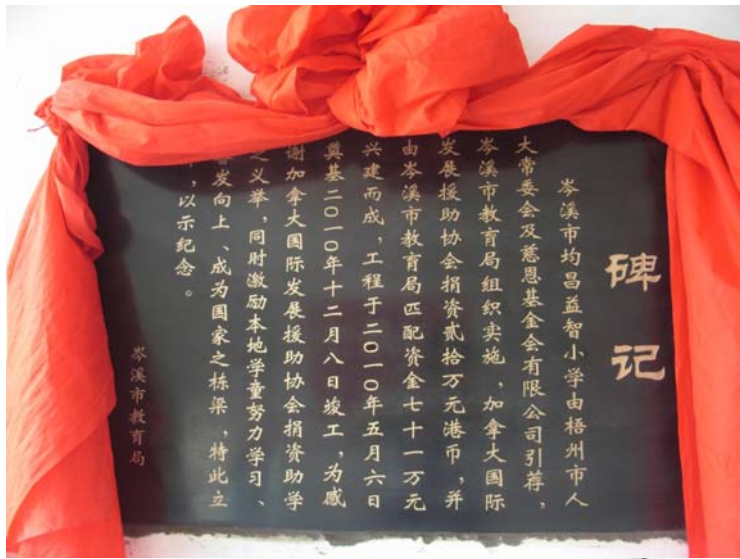 碑记
岑溪市均昌益智小学由梧州市人
大常委会及慈恩基金会有限公司引荐，
岑溪市教育局组织实施，加拿大国际
发展援助协会捐资贰拾万元港币，并
由岑溪市教育局匹配资金七十一万元
兴建而成，工程于二〇一〇年五月六日
奠基二〇一〇年十二月八日竣工，为感
谢加拿大国际发展援助协会捐资助学
之义举，同时激励本地学童努力学习、
奋发向上、成为国家之栋梁，特此立
，以示纪念。
岑溪市教育局